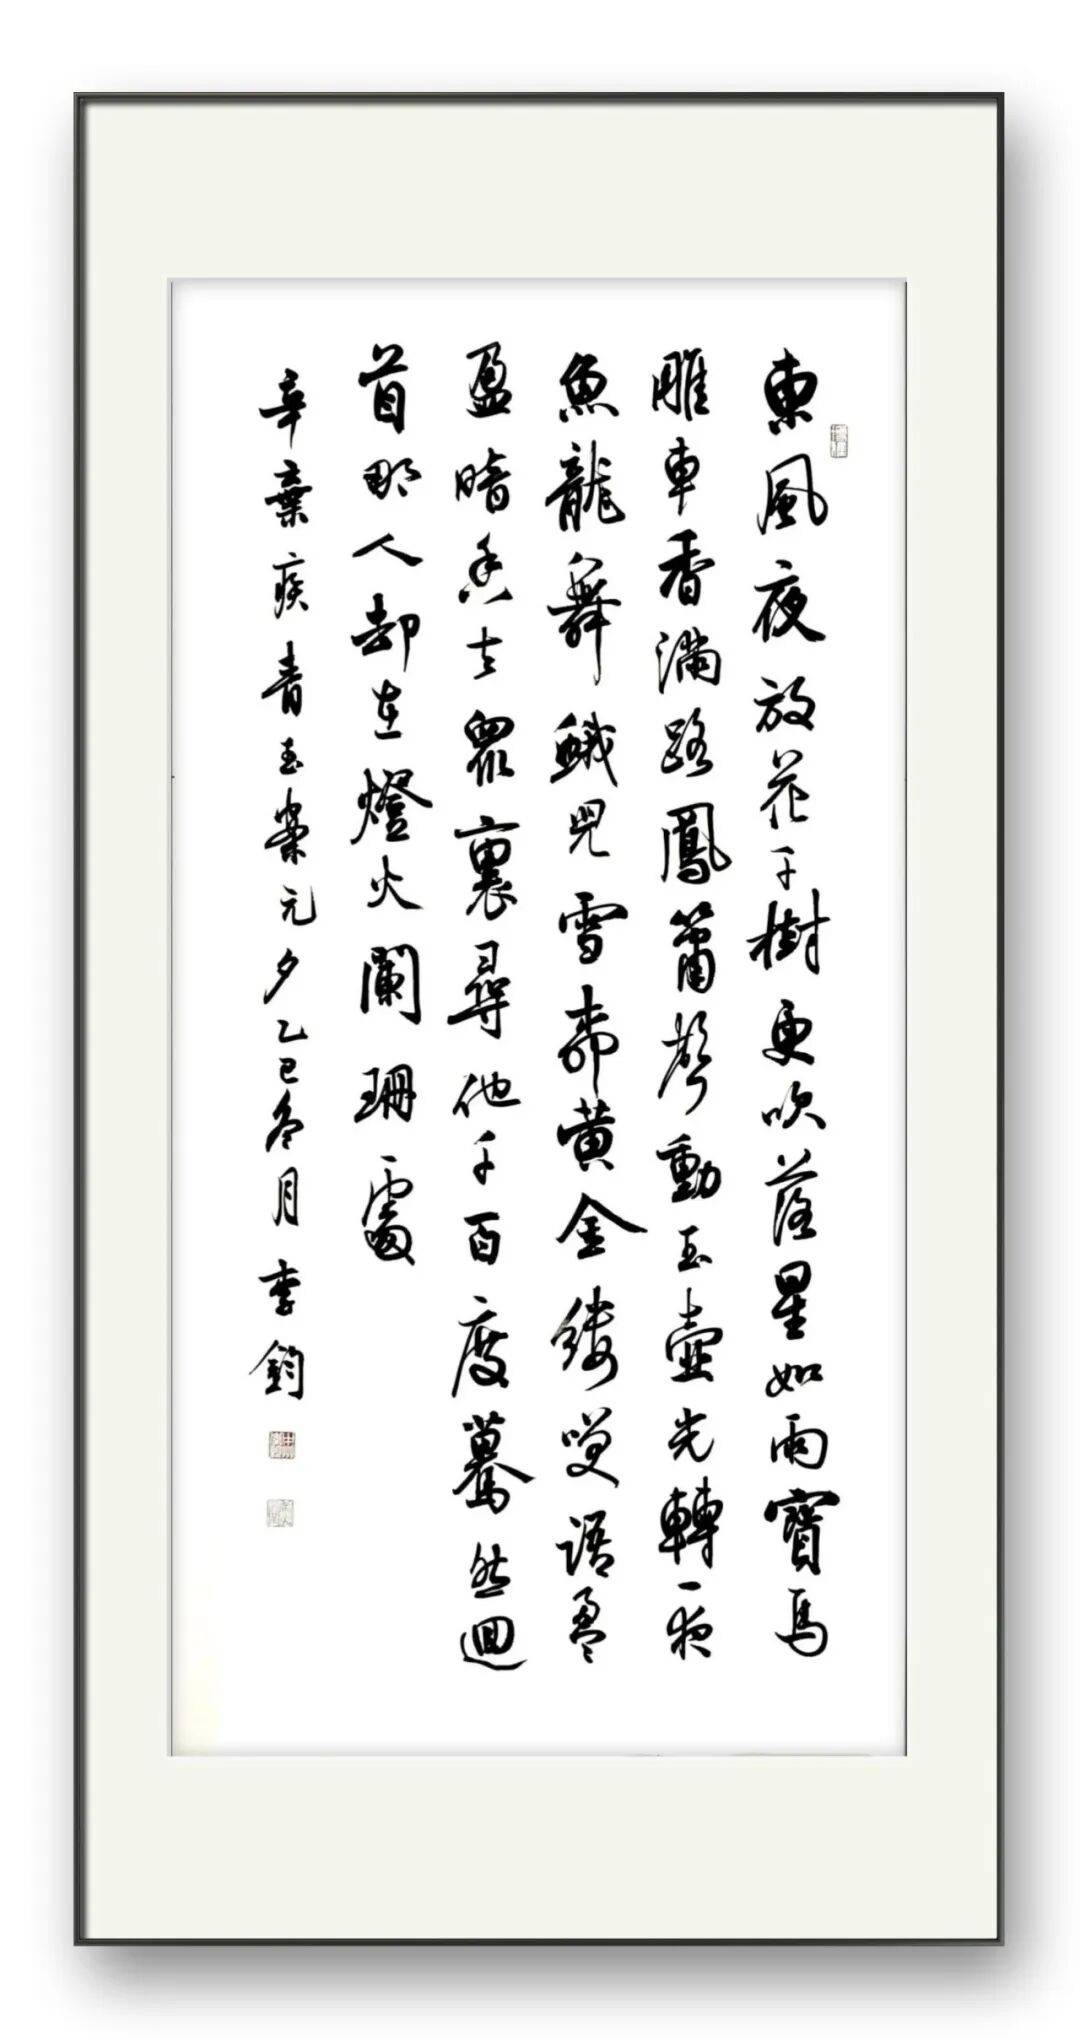 東風夜放花千樹更吹落星如雨寶馬
雕車香滿路鳳簫聲動玉壺光轉一夜
魚龍舞蛾兒雪柳黄金縷笑語盈
盈暗香去衆裏尋他千百度驀然迴
首那人却在燈火闌珊處
辛棄疾青玉案元夕乙巳冬月李鈞